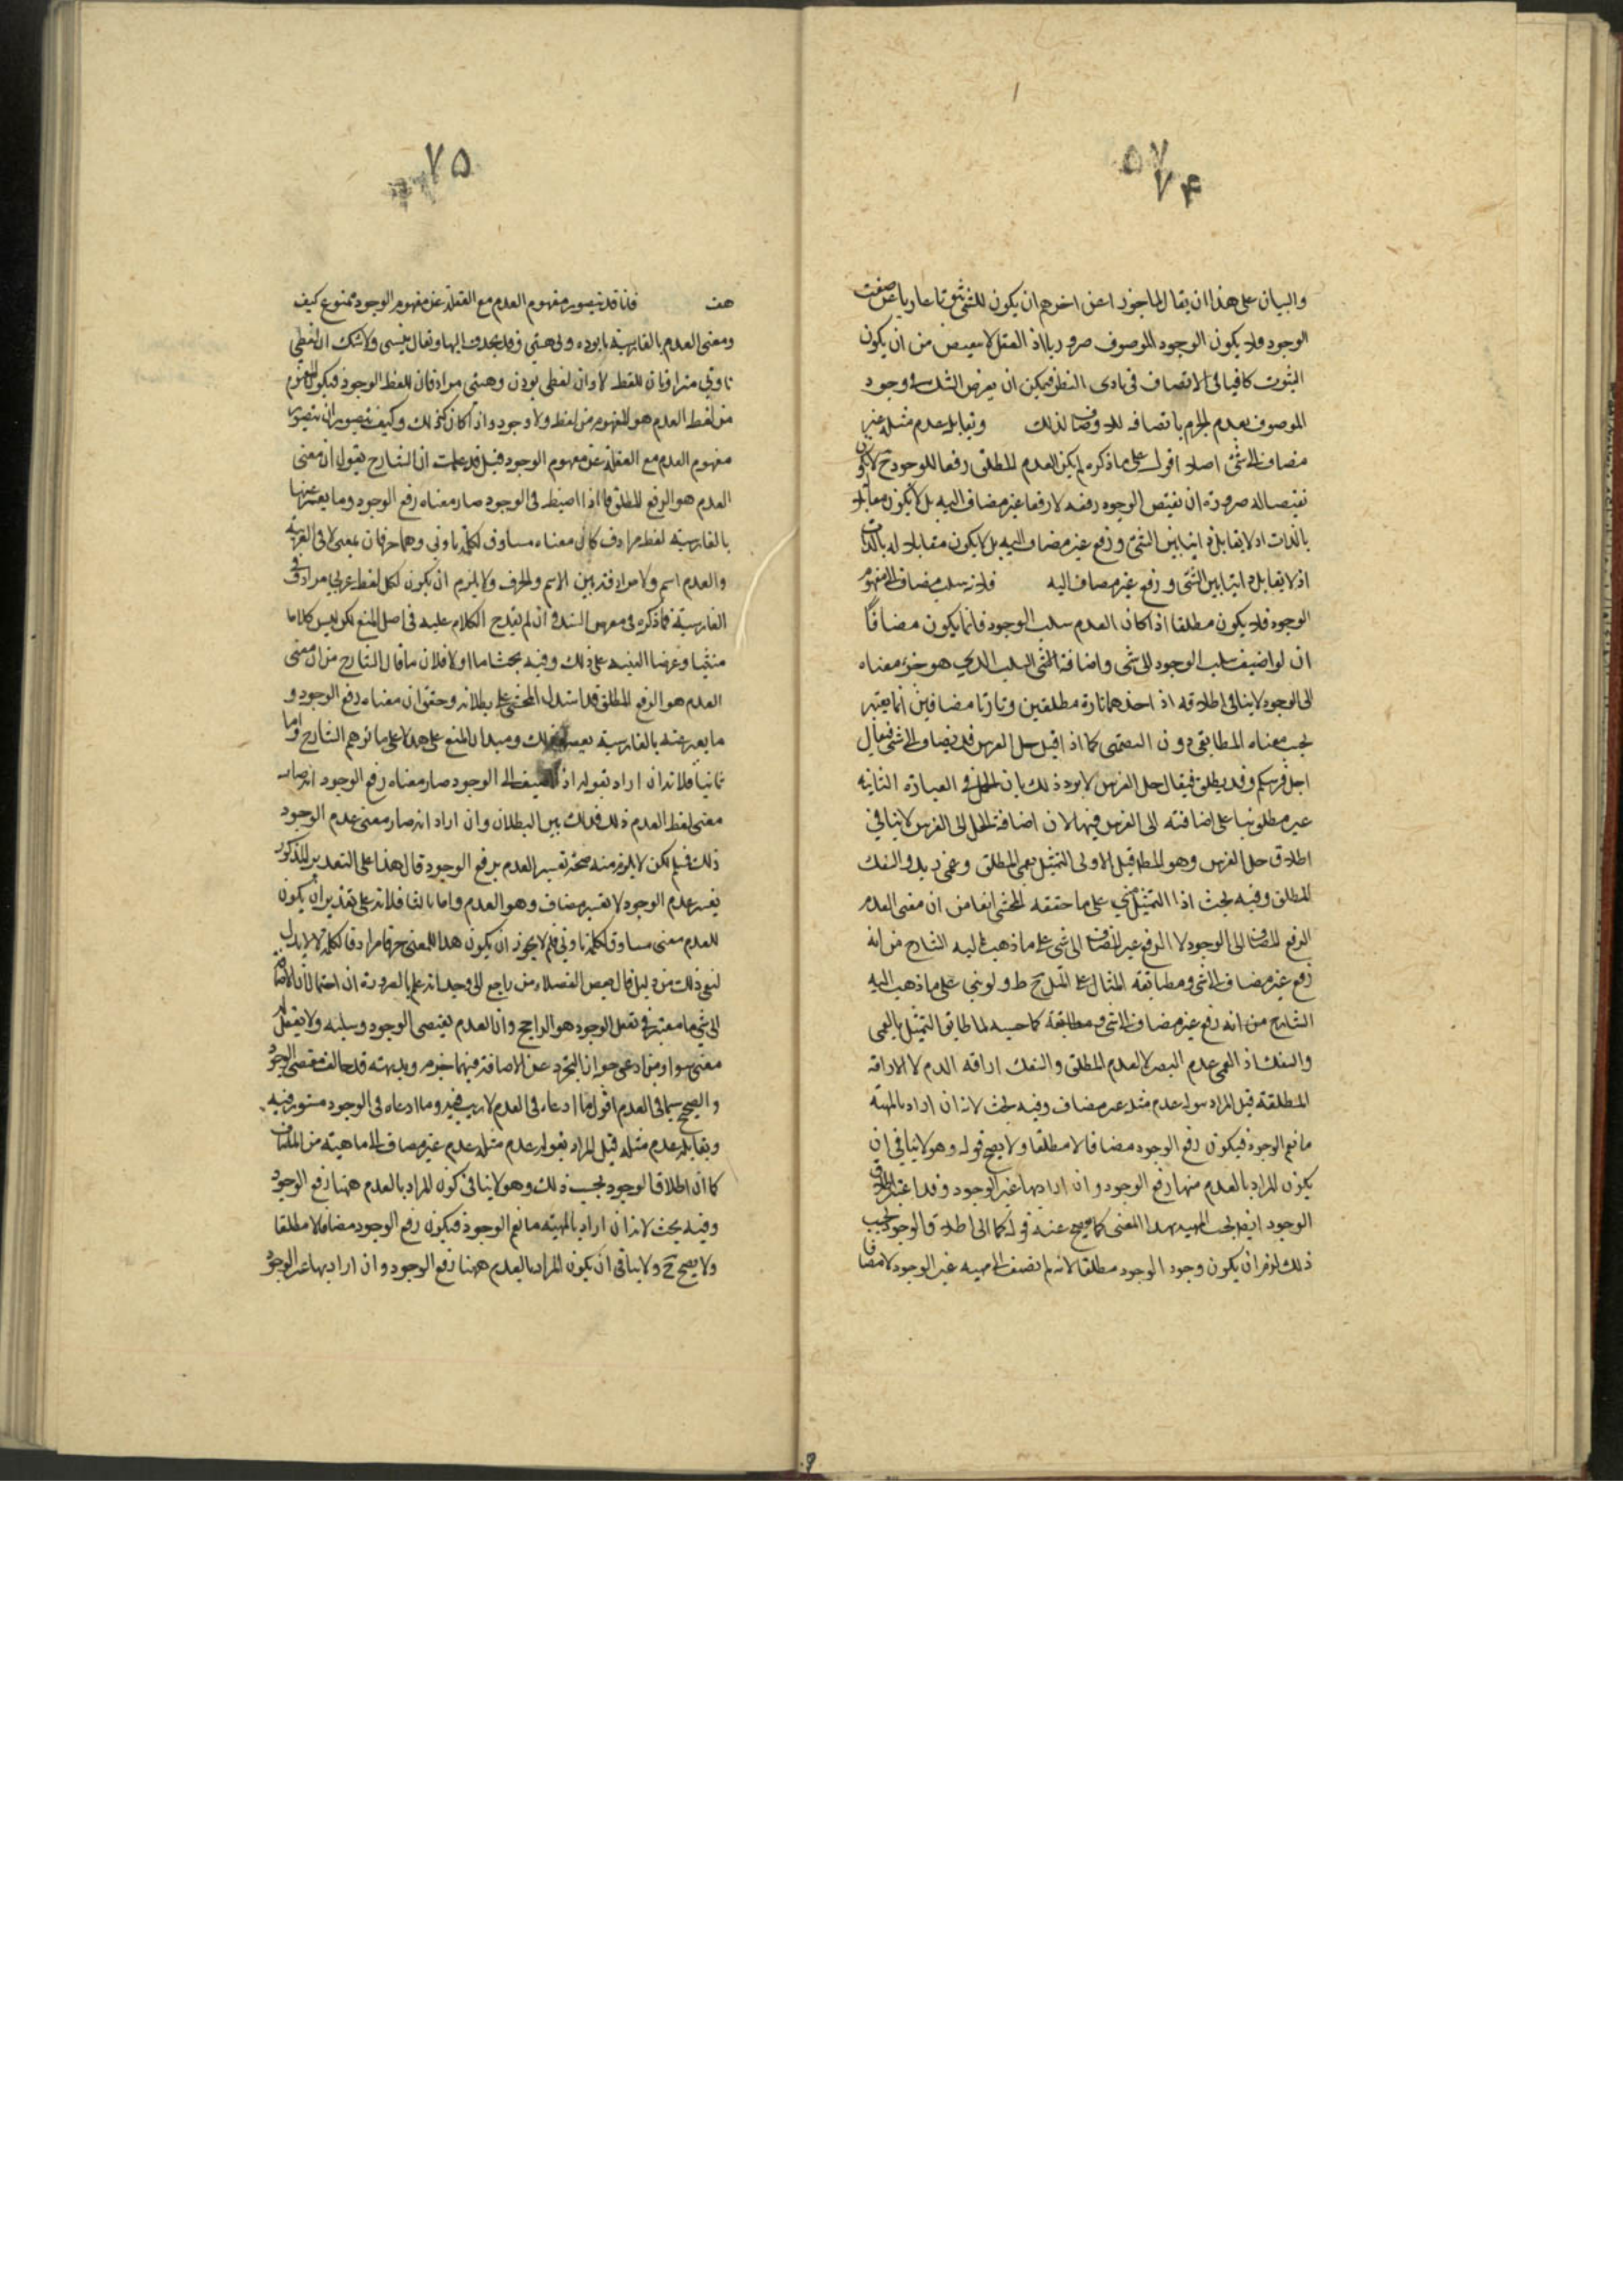 ۵۷
۷۴
والبيان على هذا ان يقال لما جوز اعن اخرهم ان يكون للشئ ثبوتا عاريا عن صفت
الوجود فلا يكون الوجود للموصوف ضروريا اذ العقل لا من ان يكون
الثبوت كافيا فى الاتصاف فى بادى النظر فيمكن ان يعرض الشك فى وجود
الموصوف بعدم الجزم باتصافه لذلك وتقابله عدم مثله غير
مضاف الى شئ اصلا اقول على ما ذكره لم يكن العدم المطلق رفعا للوجود ح لا يكون
نقيضا له ضرورة ان نقيض الوجود رفعه لا رفعا غير مضاف اليه بل لا يكون مقابلا
بالذات اذ لا تقابل ذاتيا بين الشئ ورفع غير مضاف اليه بل لا يكون مقابلا له بالذات
اذ لا تقابل ذاتيا بين الشئ ورفع غير مضاف اليه فلانه سلب مضاف الى مفهوم
الوجود فلا يكون مطلقا اذا كان العدم سلب الوجود فانما يكون مضافا
ان لو اضيف سلب الوجود الى شئ واضافة الشئ السلب الذى هو جزء معناه
الى الوجود لا ينافى اطلاقه اذ اخذهما تارة مطلقين وتارة مضافين انما يعتبر
بحسب معناه المطابقى دون التضمنى كما اذا قيل جل الفرس قد يضاف الى شئ فيقال
اجل فرسكم وقد يطلق فيقال جل الفرس لا يرد ذلك بان الجل فى العبارة الثانيه
غير مطلق بناء على اضافته الى الفرس فيها لان اضافة الجل الى الفرس لا ينافى
اطلاق جل الفرس وهو المط قيل الاولى التمثيل بعمى المطلق وعمى زيد والسفك
المطلق وفيه بحث اذا التمثيل مبنى على ما حققه المحشى انفا من ان معنى العدم
الرفع المضاف الى الوجود لا الرفع غير المضاف الى شئ على ما ذهب اليه الشارح من انه
رفع غير مضاف الى شئ ومطابقة المثال على التمثيل ح ظ ولو بنى على ما ذهب اليه
الشارح من انه رفع غير مضاف الى شئ فى مطابقة كما حسبه لما طابق التمثيل بالعمى
والسفك اذ العمى عدم البصر لا العدم المطلق والسفك اراقة الدم لا الاراقه
المطلقة قيل المراد بقوله عدم مثله غير مضاف وفيه بحث لانه ان اراد بالمهية
ما يعم الوجود فيكون رفع الوجود مضافا لا مطلقا ولا يصح قوله وهو لا ينافى ان
يكون المراد بالعدم منها رفع الوجود وان اراد بها غير الوجود وقد اعتبر اطلاق
الوجود ايضا بحسب المهيه بهذا المعنى كما يفصح عنه قوله كما ان اطلاق الوجود بحسب
ذلك لزم ان يكون وجود الوجود مطلقا لانه لم يضف الى مهيه غير الوجود لا مضافا
۷۵
هف فانا قد نتصور مفهوم العدم مع الغفلة عن مفهوم الوجود ممنوع كيف
ومعنى العدم بالفارسية نابوده ونيستى وقد يحذف اليها ويقال نيستى ولا شك ان لفظى
نا ونى مترادفان للفظ لا وان لفظى بودن وهستى مرادفان للفظ الوجود فيكون المفهوم
من لفظ العدم هو المفهوم من لفظ ولا وجود واذا كان كذلك وكيف يتصور ان يتصور
مفهوم العدم مع الغفلة عن مفهوم الوجود قيل قد علمت ان الشارح يقول ان معنى
العدم هو الرفع المطلق فاذا اضيف الى الوجود صار معناه رفع الوجود وما يعبر عنها
بالفارسية لفظ مرادف كان معناه مساوق لكلمة نا ونى وهما حرفان بمعنى لا فى العربية
والعدم اسم ولا مرادفة بين الاسم والحرف ولا يلزم ان يكون لكل لفظ عربى مرادف فى
الفارسية فما ذكره فى معرض السند فى ان لم يقدح الكلام عليه فى اصل المنع لكن ليس كلاما
متينا وغرضنا التنبيه على ذلك وفيه بحث اما اولا فلان ما قال الشارح من ان معنى
العدم هو الرفع المطلق قد استدل المحشى على بطلانه وحقق ان معناه رفع الوجود و
ما يعبر عنه بالفارسية ذلك ومبنى المنع على هذا لا على ما توهم الشارح واما
ثانيا فلانه ان اراد بقوله اذا اضيف الى الوجود صار معناه رفع الوجود انه صار
معنى لفظ العدم ذلك فذلك بين البطلان وان اراد انه صار معنى عدم الوجود
ذلك فمسلم لكن لا يلزم منه صحة تفسير العدم برفع الوجود قال هذا على التقدير المذكور
يفسر عدم الوجود لا تفسير مضاف وهو العدم واما ثالثا فلانه على تقدير ان يكون
للعدم معنى مساوق لكلمة نا ونى فلم لا يجوز ان يكون هذا المعنى حرفا مرادفا لكلمة لا لا بد
لنفى ذلك من دليل قال بعض الفضلاء من راجع الى وجدانه علم بالضرورة ان احتمال الاضافة
الى شئ ما معتبر فى تعقل الوجود هو الراجح وان العدم يقتضى الوجود وسلبه ولا يعقل له
معنى سواه ومن ادعى جواز التجرد عن الاضافة فيهما خيره وبديهته قد خالف مقتضى الوجود
والصحيح سيما فى العدم اقول ما ادعاه فى العدم لا ريب فيه وما ادعاه فى الوجود مستور فيه
ويقابله عدم مثله قيل المراد بقوله عدم مثله عدم غير مضاف الى ماهية من الماهيات
كما ان اطلاق الوجود بحسب ذلك وهو لا ينافى كون المراد بالعدم ههنا رفع الوجود
وفيه بحث لانه ان اراد بالمهية ما يعم الوجود فيكون رفع الوجود مضافا لا مطلقا
ولا يصح ح ولا ينافى ان يكون المراد بالعدم ههنا رفع الوجود وان اراد بها غير الوجود